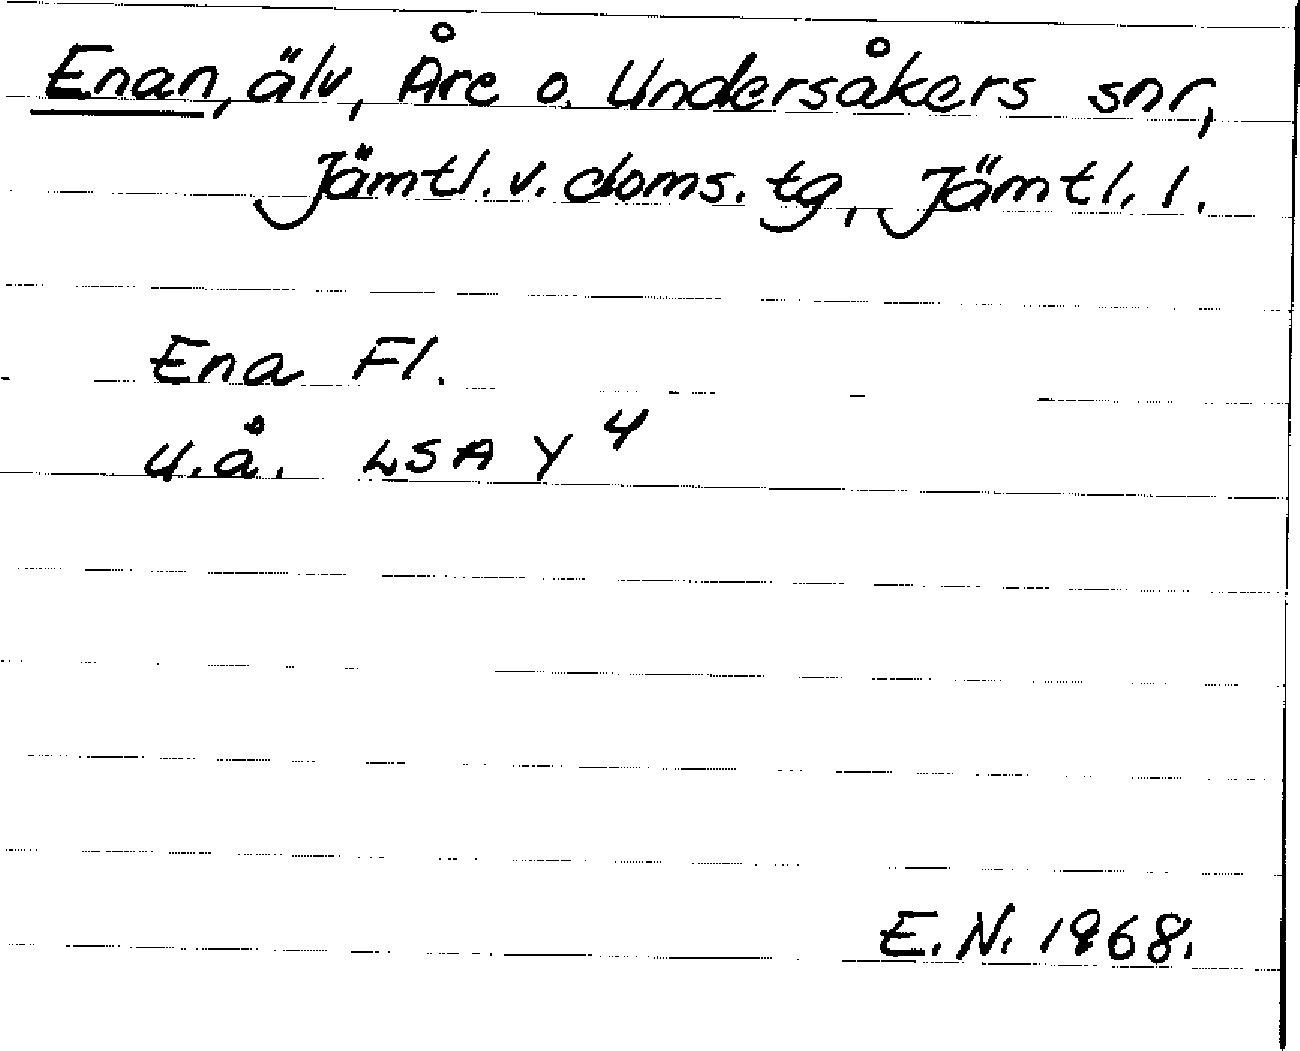 Enan, älv, Åre o. Undersåkers snr,
Jämtl. v. doms. tg, Jämtl. l.
Ena Fl.
u.å. LSA Y 4
E. N. 1968.